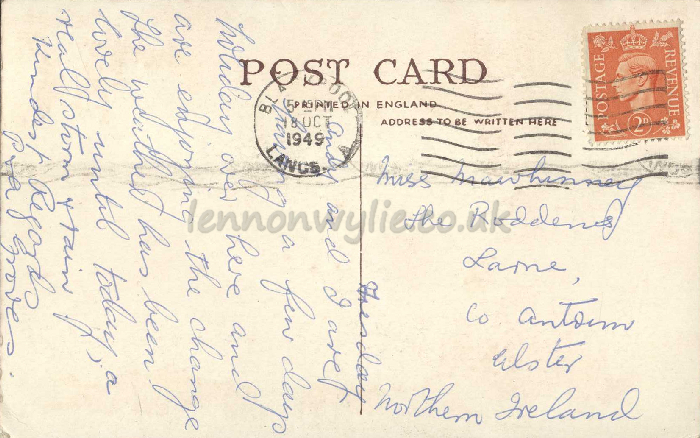 POST CARD
PRINTED IN ENGLAND
ADDRESS TO BE WRITTEN HERE
BLACKPOOL
OCT
1949
LANCS. A
POSTAGE
REVENUE
2D
Tuesday
and I are
having a few days
holiday over here and
are enjoying the change
The weather has been
lovely until today, a
real storm & rain
Kindest Regards
Groves.
Miss Mawhinney
The Roddens
Larne,
Co Antrim
Ulster
Northern Ireland
lennonwylie.co.uk